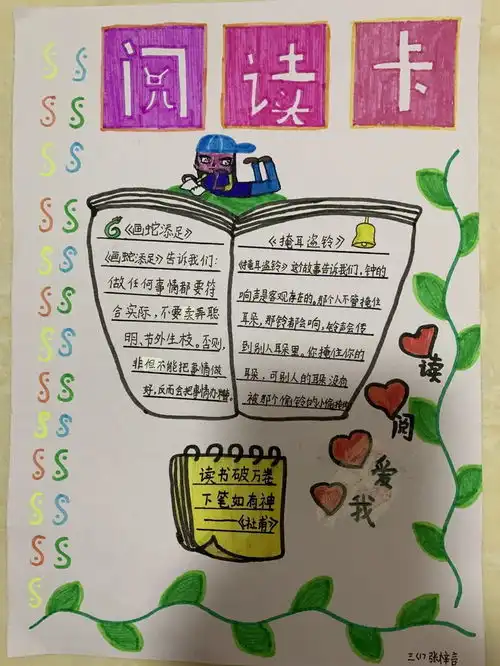 阅读卡
《画蛇添足》
《画蛇添足》告诉我们:
做任何事情都要符
合实际,不要卖弄聪
明、节外生枝。否则,
非但不能把事情做
好,反而会把事情办糟
《掩耳盗铃》
《掩耳盗铃》这个故事告诉我们,钟的
响声是客观存在的,那个人不管掩住
耳朵,那铃都会响,铃声会传
到别人耳朵里。你掩住你的
耳朵,可别人的耳朵没
被那个偷铃的小偷
读
阅
爱
我
读书破万卷
下笔如有神
——《杜甫》
三(1)张梓言